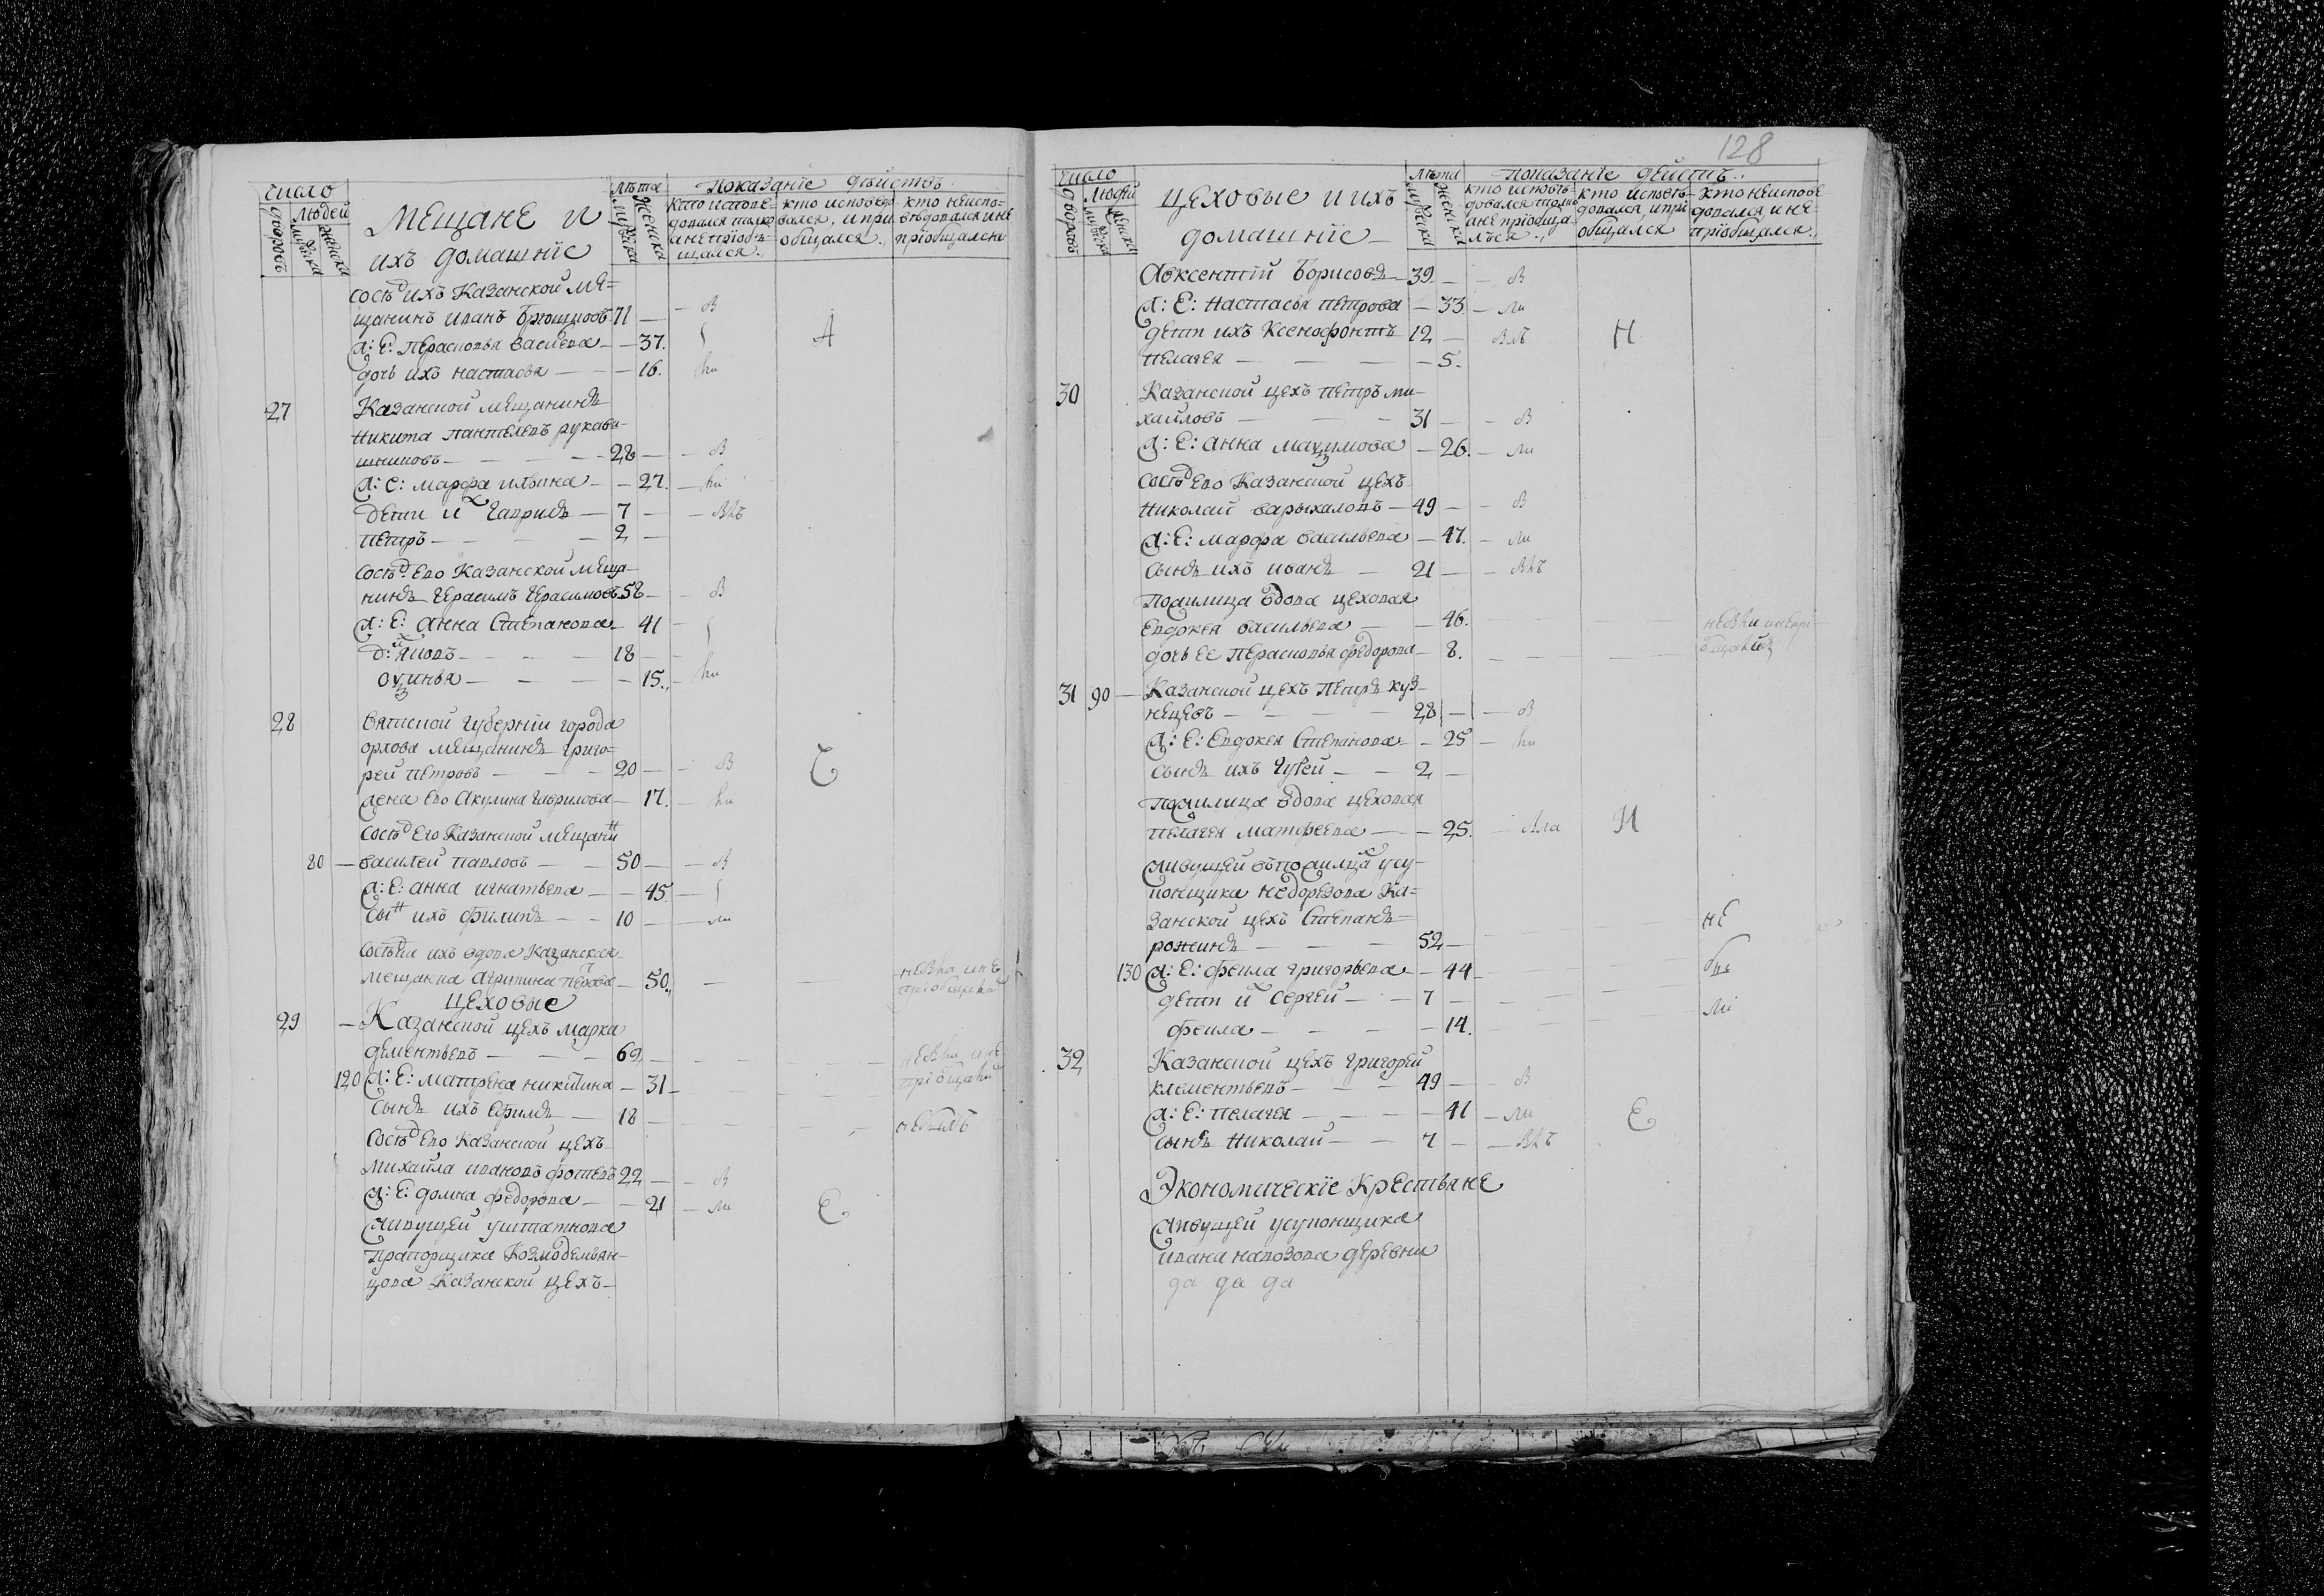 число
лѣта
показанїе дѣйствъ
дворовъ
людей
мужеска
женска
мещане и
ихъ домашнїе
мужеска
женска
кто испове-
довался толко
а не прїоб-
щался.
кто исповедо
вался, и при
общался.
кто неиспо-
вѣдовался и не
прїобщался
сосѣд ихъ Казанской ме=
щанинъ иванъ 71 — — в
ж: е: Перасковья василева — — 37. А
дочь ихъ настасья — — 16. ли
27 Казанской мещанинъ
никита пантелевъ рукави-
шниковъ — — — 28 — — в
ж: е: марфа ильина — — 27. — ли
дети их гаврилъ — 7 — — влъ
петръ — — — 2 —
сосѣд ево Казанской меща-
нинъ герасимъ герасимовъ 58 — — в
ж: е: анна степанова — 41 —
д: их яковъ — — — 18 —
— — — 15. — ли
28 вятской губернїи города
орлова мещанинъ григо=
рей петровъ — — — 20 — — в Е
жена ево акулина гаврилова — 17. — ли
сосѣд его казанской мещанинъ
80 — василей павловъ — — 50 — — в
ж: е: анна игнатьева — — 45. —
сынъ ихъ филипъ — — 10 — — ли
сосѣтка ихъ вдова казанская
мещанка агрипина петрова — 50., — — не вли и не
прїобщали
цеховые
29 — Казанской цехъ марка
дементьевъ — — — 69 — — — — не вли и не
120 ж: е: матрена никитина — 31 — — — — прїобщали
сынъ ихъ ефимъ — 18 — — — не былъ
сосѣд ево казанской цехъ
михайла ивановъ фотеевъ 22 — — в
ж: е: домна федорова — — 21 — ли Е
живущей у штатнова
прапорщика козмодемьян-
цова Казанской цехъ
128
число
лѣта
показанїе дейстъ.
дворовъ
людей
мужеска
женска
цеховые и ихъ
домашнїе
мужеска
женска
кто исповѣ-
довался толко
а не прїобща-
лъся.,
кто исповѣ-
довался, и при
общался
кто неиспове
довался, и не-
прїобщался.,
Авксентїй борисовъ — 39 — — в
ж: е: настасья петрова — 33 — ли
дети ихъ ксенофонтъ 12 — влъ Н
пелагея — — — 5.
30 Казанской цехъ петръ ми-
хайловъ — — — 31 — — в
ж: е: анна максимова — 26. — ли
сосѣд ево Казанской цехъ
николай варыхаловъ — 49 — — в
ж: е: марфа васильева — 47. — ли
сынъ ихъ иванъ — 21 — — влъ
пожилица вдова цеховая
евдокея васильева — — 46. — — не вли и непрї
дочь ее перасковья федорова — 8. — — — общались
31 90 — Казанской цехъ петръ куз-
нецевъ — — — 28 — — в
ж: е: евдокея степанова — 25 — ли
сынъ ихъ гурей — — 2 —
пожилица вдова цеховая
пелагея матфеева — — 25. — вла И
живущей въ пожилцах у су-
конщика недорезова ка=
занской цехъ степанъ
рожинъ — — — 52 — — — — не
130 ж: е: фекла григорьева — — 44 — — —
дети их сергей — — 7 — — — —
фекла — — — — 14. — — — ли
32 Казанской цехъ григорей
клементьевъ — — — 49 — — в
ж: е: пелагея — — — — 41 — ли Е
сынъ николай — — 7 — — влъ
Экономическїе Крестьяне
живущей у суконщика
ивана навозова деревни
да да да